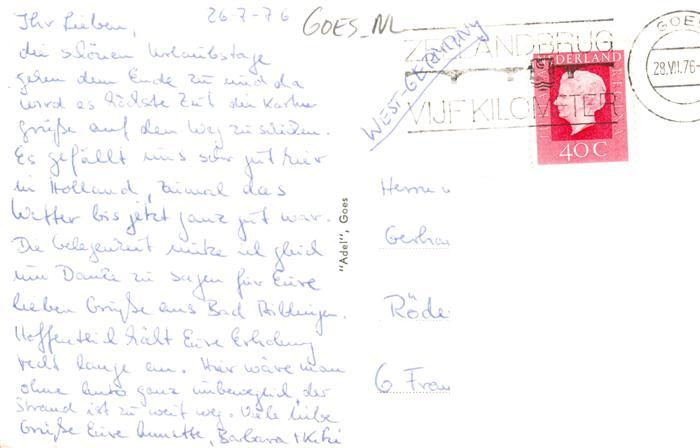 26-7-76
GOES_NL
Ihr Lieben,
die schönen Urlaubstage
gehen dem Ende zu und da
wird es höchste Zeit die Karten-
grüße auf den Weg zu schicken.
Es gefällt uns sehr gut hier
in Holland, zumal das
Wetter bis jetzt ganz gut war.
Die Gelegenheit nutze ich gleich
um Danke zu sagen für Eure
lieben Grüße aus Bad
Hoffentlich hält Eure Erholung
recht lange an. Hier wäre man
ohne Auto ganz unbeweglich, der
Strand ist zu weit weg. Viele liebe
Grüße Eure Annette, Barbara +
"Adel", Goes
WEST-GERMANY
ZEELANDBRUG
VIJF KILOMETER
GOES
28.VII.76
NEDERLAND
40 C
Herrn u
Gerhar
Röde
6 Fran